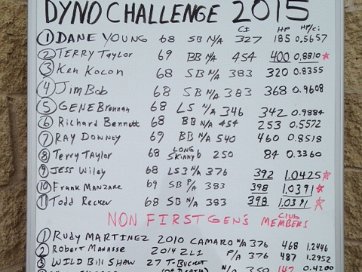 DYNO CHALLENGE 2015
CI HP HP/CI
① DANE YOUNG 68 SB N/A 327 185 0.5657
② TERRY Taylor 69 BB N/A 454 400 0.8810 *
③ Ken Kocon 68 SB N/A 383 320 0.8355
④ Jim Bob 68 SB N/A 383 368 0.9608
⑤ GENE Brennan 68 LS N/A 346 342 0.9884
⑥ Richard Bennett 68 BB N/A 454 253 0.5572
⑦ RAY DOWNEY 69 BB N/A 540 460 0.8518
⑧ Terry Taylor 68 LONG SKINNY 6 250 84 0.3360
⑨ Jess Wiley 68 LS3 N/A 376 392 1.0425 *
⑩ FRANK MANZANE 69 SB N/A 383 398 1.0391 *
⑪ Todd Recker 68 SB N/A 383 398 1.0391 *
NON FIRST GENS CLUB MEMBERS
① RUDY MARTINEZ 2010 CAMARO N/A 376 468 1.2446
② Robert Manasse 2014 ZL1 376 487 1.2952
③ WILD Bill SHAW 27 T-Bucket N/A 350